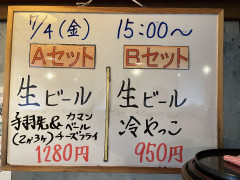 7/4(金) 15:00〜
Aセット
生ビール
手羽先&カマンベールチーズフライ
(2ヶ3ヶ)
1280円
Bセット
生ビール
冷やっこ
950円